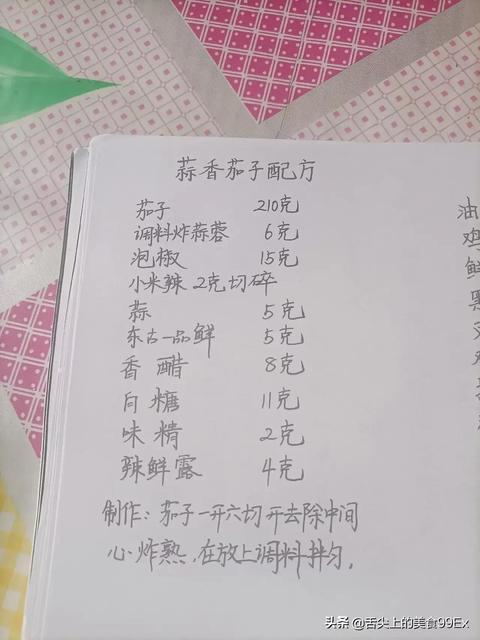 蒜香茄子配方
茄子 210克
调料炸蒜蓉 6克
泡椒 15克
小米辣 2克切碎
蒜 5克
东古一品鲜 5克
香醋 8克
白糖 11克
味精 2克
辣鲜露 4克
制作：茄子一开六切开去除中间
心炸熟，在放上调料拌匀，
油
鸡
鲜
头条 @舌尖上的美食99Ex